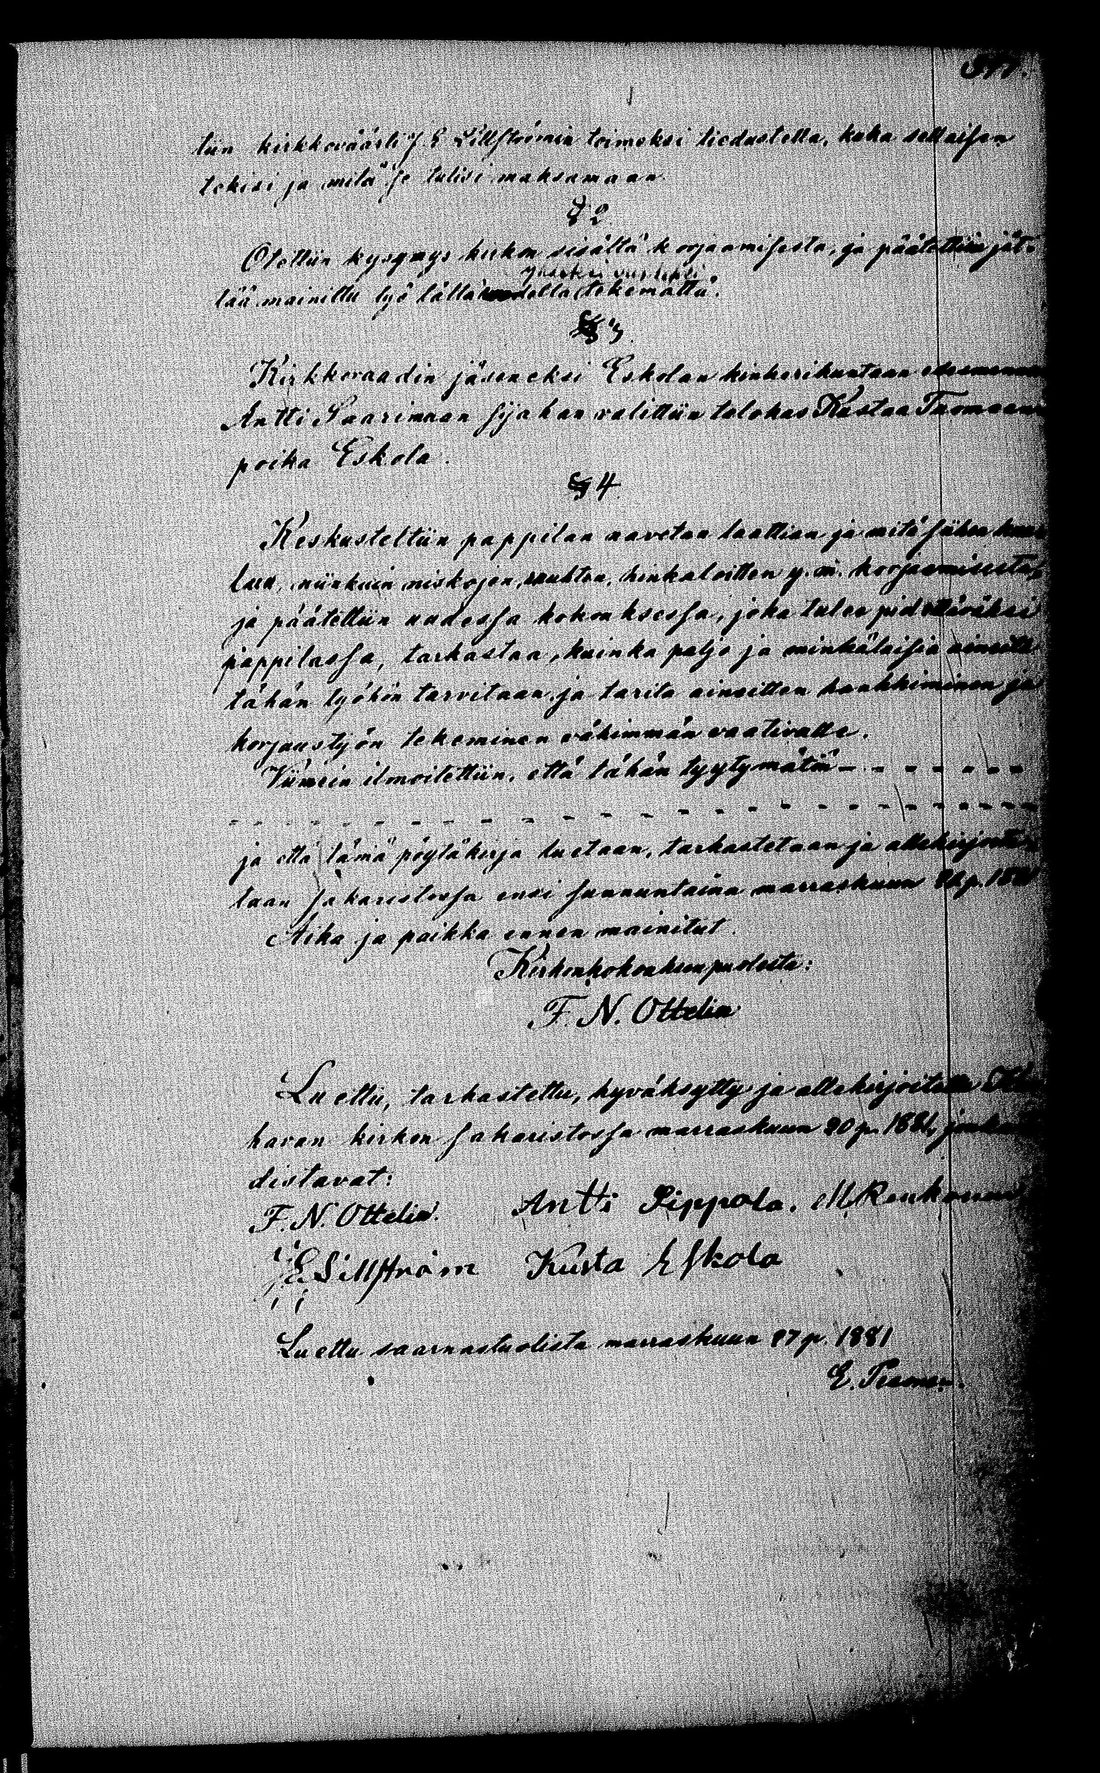 377.
tiin kirkkoväärti J. E. Sillströmin toimeksi tiedustella, kuka sellaisen
tekisi ja mitä se tulisi maksamaan.
§ 2
Otettiin kysymys kirkon sisältä korjaamisesta, ja päätettiin jät-
yhseksi vuodeksi
tää mainittu työ tällä della tekemättä.
§ 3.
Kirkkoraadin jäseneksi Eskolan kinkerikuntaan
Antti Saarimaan sijahan valittiin talokas Kustaa Tuomaan
poika Eskola.
§ 4
Keskusteltiin pappilan navetan laattian ja mitä siihen kuu
luu, niinkuin niskojen, ruuhten, hinkaloitten y. m. korjaamisesta,
ja päätettiin uudessa kokouksessa, joka tulee pidettäväksi
pappilassa, tarkastaa, kuinka paljo ja minkälaisia aineita
tähän työhön tarvitaan ja tarita aineitten hankkiminen ja
korjaustyön tekeminen vähimmän vaativalle.
Viimein ilmoitettiin, että tähän tyytymätön - - - - - -
- - - - - - - - - - - - - - - - - -
ja että tämä pöytäkirja luetaan, tarkastetaan ja allekirjoite-
taan sakaristossa ensi sunnuntaina marraskuun 20 p. 1881
Aika ja paikka ennen mainitut.
Kirkonkokouksen puolesta:
F. N. Ottelin
Luettu, tarkastettu, hyväksytty ja allekirjoitettu
havan kirkon sakaristossa marraskuun 20 p. 1881,
distavat:
F. N. Ottelin. Antti Pippola. M. Renkonen
J E Sillström Kusta Eskola
Luettu saarnastuolista marraskuun 27 p. 1881
E.